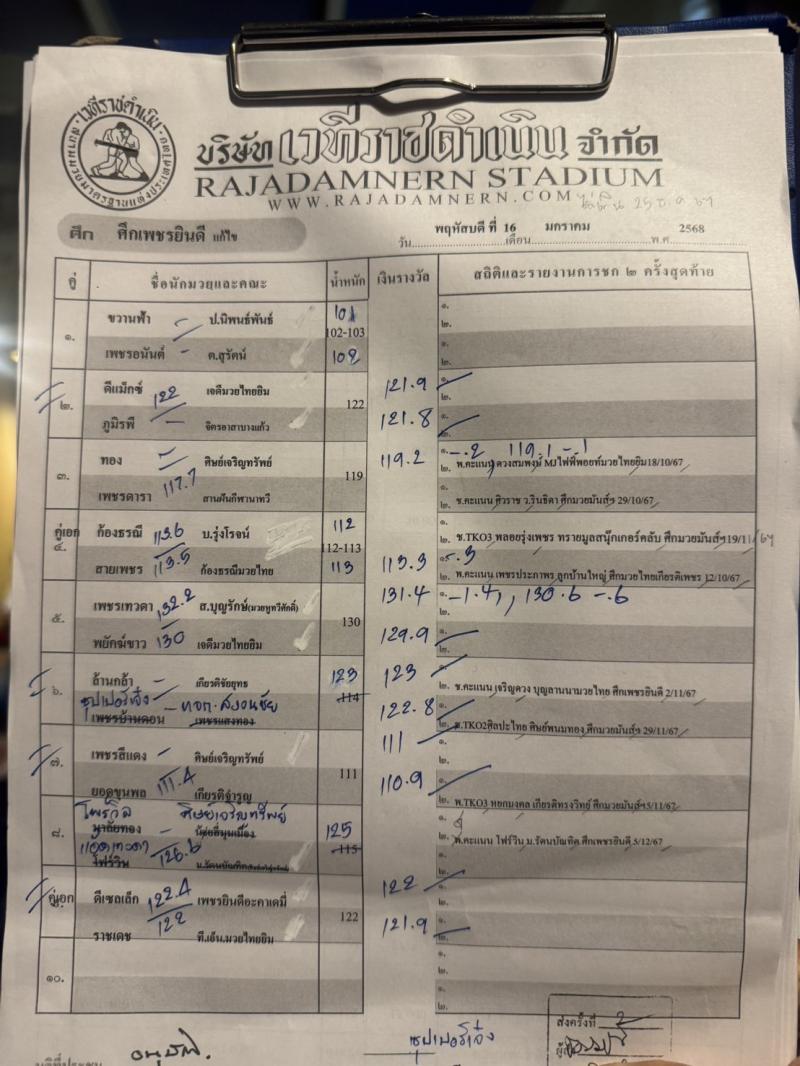 เวทีราชดำเนิน
บริษัท เวทีราชดำเนิน จำกัด
RAJADAMNERN STADIUM
WWW.RAJADAMNERN.COM
ศึก ศึกเพชรยินดี แก้ไข
วัน พฤหัสบดี ที่ 16 เดือน มกราคม พ.ศ. 2568
คู่ ชื่อนักมวยและคณะ น้ำหนัก เงินรางวัล สถิติและรายงานการชก ๒ ครั้งสุดท้าย
๑.
ขวานฟ้า ป.นิพนธ์พันธ์ 101 ๑.
102-103 ๒.
เพชรอนันต์ ต.สุรัตน์ 102 ๑.
๒.
๒.
ดีแม็กซ์ 122 เจดีมวยไทยยิม 122 121.9 ๑.
๒.
ภูมิรพี จิตรอาสาบางแก้ว 121.8 ๑.
๒.
๓.
ทอง ศิษย์เจริญทรัพย์ 119 119.2 ๑. -.2 119.1 -.1
๒. พ.คะแนน ดวงสมพงษ์ MJไฟฟ์พอยท์มวยไทยยิม18/10/67
เพชรดารา 117.7 สานฝันกีฬานาทวี ๑.
๒. ช.คะแนน ศิวราช ว.รินธิดา ศึกมวยมันส์ฯ 29/10/67
คู่เอก ๔.
ก้องธรณี 113.6 บ.รุ่งโรจน์ 112 ๑.
112-113 ๒. ช.TKO3 พลอยรุ่งเพชร ทรายมูลสนุ๊กเกอร์คลับ ศึกมวยมันส์ฯ19/11/67
สายเพชร 113.5 ก้องธรณีมวยไทย 113 113.3 ๑. -.3
๒. พ.คะแนน เพชรประภาพร ลูกบ้านใหญ่ ศึกมวยไทยเกียรติเพชร 12/10/67
๕.
เพชรเทวดา 132.2 ส.บุญรักษ์(มวยพูทวีศักดิ์) 130 131.4 ๑. -1.4, 130.6 -.6
๒.
พยัคฆ์ขาว 130 เจดีมวยไทยยิม 129.9 ๑.
๒.
๖.
ล้านกล้า เกียรติชัยยุทธ 123 123 ๑.
ซุปเปอร์เจ๋ง ทจก.สงวนชัย 114 ๒. ช.คะแนน เจริญดวง บุญลานนามวยไทย ศึกเพชรยินดี 2/11/67
เพชรบ้านดอน เพชรแสงทอง 122.8 ๑.
๒. พ.TKO2ศิลปะไทย ศิษย์พนมทอง ศึกมวยมันส์ฯ 29/11/67
๗.
เพชรสีแดง ศิษย์เจริญทรัพย์ 111 111 ๑.
๒.
ยอดขุนพล 111.4 เกียรติจำรูญ 110.9 ๑.
๒. พ.TKO3 หยกมงคล เกียรติทรงวิทย์ ศึกมวยมันส์ฯ5/11/67
๘.
ไพรวัล ศิษย์เจริญทรัพย์ 125 ๑.
๒. พ.คะแนน โฟร์วิน บ.รัตนบัณฑิต ศึกเพชรยินดี 5/12/67
แอ๊ดเทวดา 126.6 115 ๑.
โฟร์วิน บ.รัตนบัณฑิต ๒.
คู่เอก
ดีเซลเล็ก 122.4 เพชรยินดีอะคาเดมี่ 122 122 ๑.
๒.
ราชเดช 122 ที.เอ็น.มวยไทยยิม 121.9 ๑.
๒.
๑๐.
๑.
๒.
๑.
๒.
ซุปเปอร์เจ๋ง
ส่งครั้งที่ 2